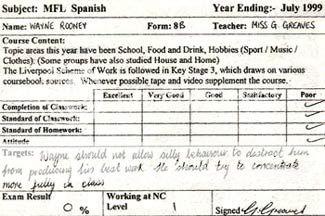 Subject: MFL Spanish Year Ending:- July 1999
Name: WAYNE ROONEY Form: 8B Teacher: MISS G. GREAVES
Course Content:
Topic areas this year have been School, Food and Drink, Hobbies (Sport / Music /
Clothes): (Some groups have also studied House and Home)
The Liverpool Scheme of Work is followed in Key Stage 3, which draws on various
coursebook sources. Whenever possible tape and video supplement the course.
Excellent Very Good Good Satisfactory Poor
Completion of Classwork:
Standard of Classwork:
Standard of Homework:
Attitude
Targets: Wayne should not allow silly behaviour to distract him
from producing his best work. He should try to concentrate
more fully in class
Exam Result Working at NC
0 % Level 1 Signed G. Greaves